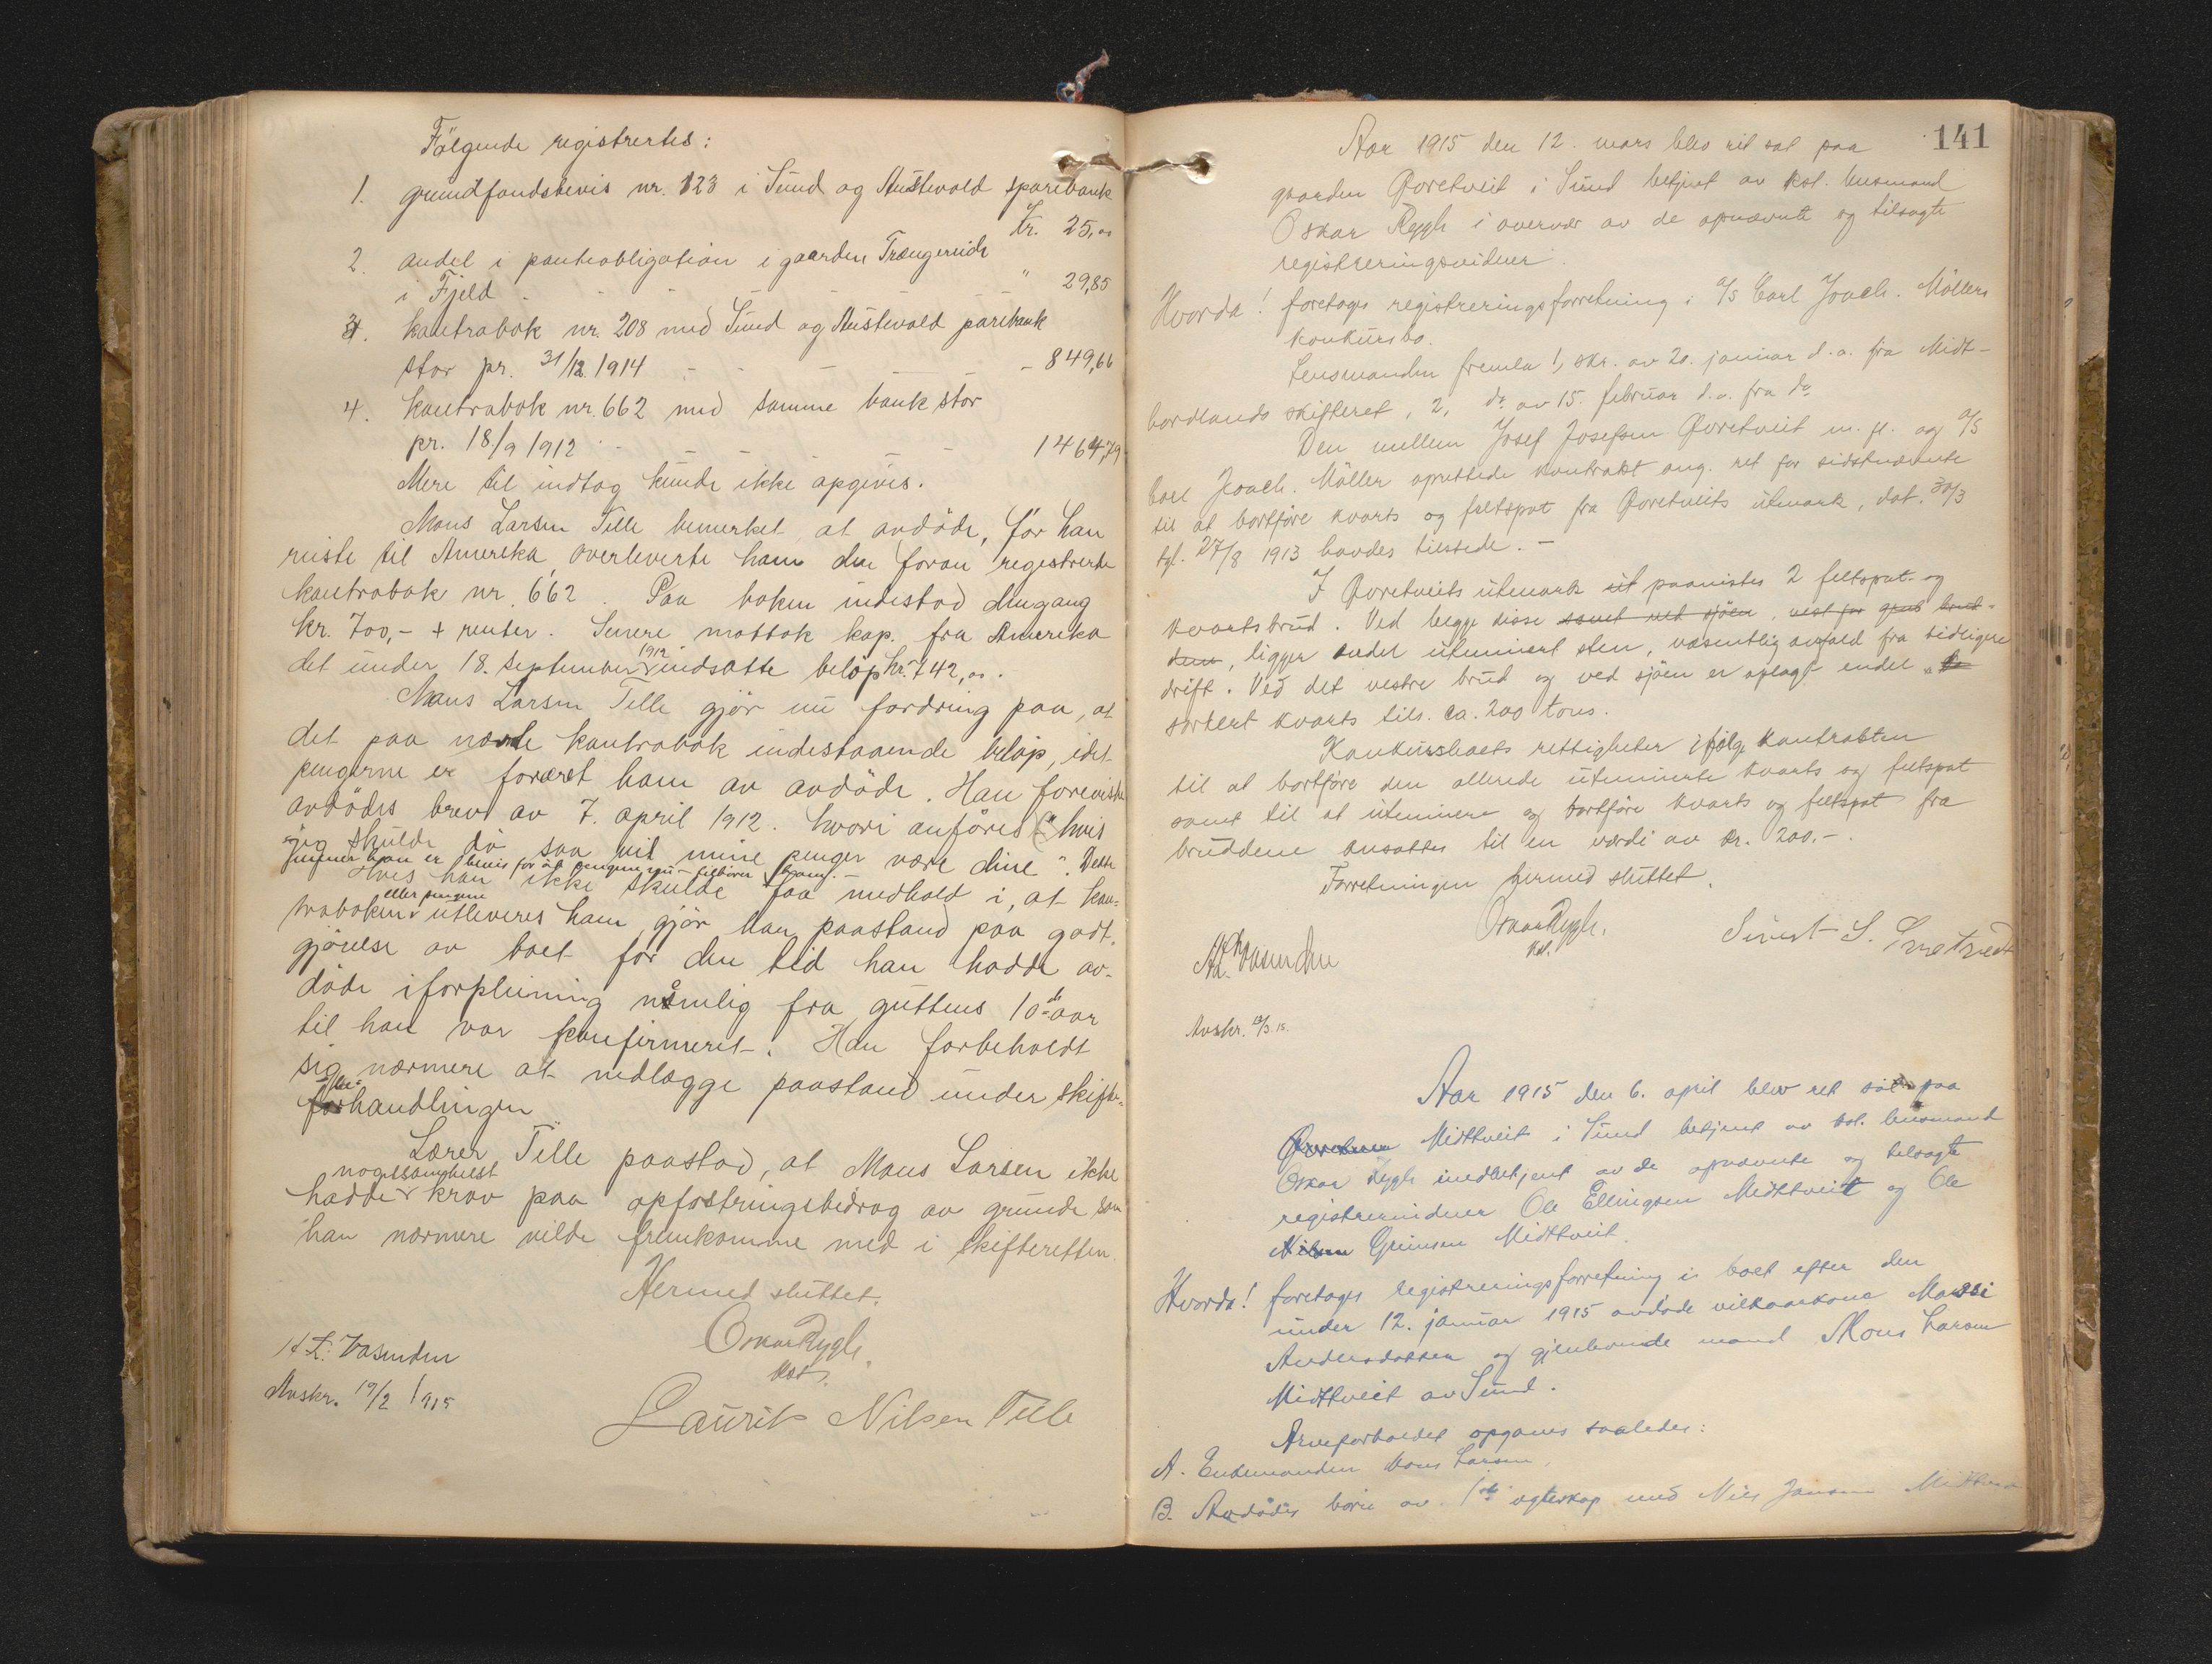 Følgende registrertes:
1. grundfondsbevis nr. 123 i Sund og Austevold sparebank
kr. 25,00
2. andel i panteobligation i gaarden Trængereide
i Fjeld - - - - " 29,85
3. kontrabok nr. 208 med Sund og Austevold parebank
stor pr. 31/12 1914 - - - - - 849,66
4. kontrabok nr. 662 med samme bank stor
pr. 18/9 1912 - - - - 1464,79
Mere til indtag kunde ikke opgives.
Mons Larsen Telle bemerket, at avdøde, før han
reiste til Amerika, overleverte ham den foran registrerte
kontrabok nr. 662. Paa boken indestod dengang
kr. 700,- + renter. Senere mottok kap. fra Amerika
det under 18. september 1912 indsatte beløp kr. 742,00.
Mons Larsen Telle gjør nu fordring paa, at
det paa nævnte kontrabok indestaaende beløp, idet
pengerne er foræret ham av avdøde. Han foreviste
avdødes brev av 7. april 1912. hvori anføres: "hvis
jeg skulde dø saa vil mine penger være dine". Dette
mener han er bevis for at pengene nu tilhører ham. -
Hvis han ikke skulde faa medhold i, at kon-
traboken eller pengene utleveres ham gjør han paastand paa godt-
gjørelse av boet for den tid han hadde av-
døde i forpleining nemlig fra guttens 10de aar
til han var konfirmeret. Han forbeholdt
sig nærmere at nedlægge paastand under skifte-
behandlingen
Lærer Telle paastod, at Mons Larsen ikke
hadde nogensomhelst krav paa opfostringsbidrag av grunde som
han nærmere vilde fremkomme med i skifteretten.
Hermed sluttet.
Oskar Rygh.
kst.
H L. Vasenden
Avskr. 19/2 1915
Laurits Nilsen Telle
141
Aar 1915 den 12. mars blev ret sat paa
gaarden Toretveit i Sund betjent av kst. lensmand
Oskar Rygh i overvær av de opnævnte og tilsagte
registreringsvidner.
Hvorda! foretages registreringsforretning i a/s Carl Joach. Møllers
konkursbo.
Lensmanden fremla 1, skr. av 20. januar d.a. fra Midt-
hordlands skifteret, 2, do av 15. februar d.a. fra do
Den mellem Josef Josefsen Toretveit m. fl. og a/s
Carl Joach. Møller oprettede kontrakt ang. ret for sidstnævnte
til at bortføre kvarts og feltspat fra Toretveits utmark, dat. 30/3
tgl. 27/8 1913 havdes tilstede. -
I Toretveits utmark ut paavistes 2 feltspat- og
kvartsbrud. Ved begge disse samt ved sjøen, vest for brud-
dene, ligger endel utminert sten, væsentlig avfald fra tidligere
drift. Ved det vestre brud og ved sjøen er oplagt endel
sortert kvarts tils. ca. 200 tons.
Konkursboets rettigheter ifølge kontrakten
til at bortføre den allerede utminerte kvarts og feltspat
samt til at utminere og bortføre kvarts og feltspat fra
bruddene ansattes til en værdi av kr. 200.-.
Forretningen hermed sluttet.
Oskar Rygh.
kst.
Vasenden
Sivert S.
Avskr. /3. 15.
Aar 1915 den 6. april blev ret sat paa
Midttveit i Sund betjent av kst. lensmand
Oskar Rygh medbetjent av de opnævnte og tilsagte
registrervidner Ole Ellingsen Midttveit og Ole
Nilsen Grimsen Midttveit.
Hvorda! foretages registreringsforretning i boet efter den
under 12. januar 1915 avdøde vilkaarskone Massi
Andersdatter og gjenlevende mand Mons Larsen
Midttveit av Sund.
Arveforholdet opgaves saaledes:
A. Enkemanden Mons Larsen.
B. Avdødes børn av 1ste egteskap med Nils Jansen Midttveit